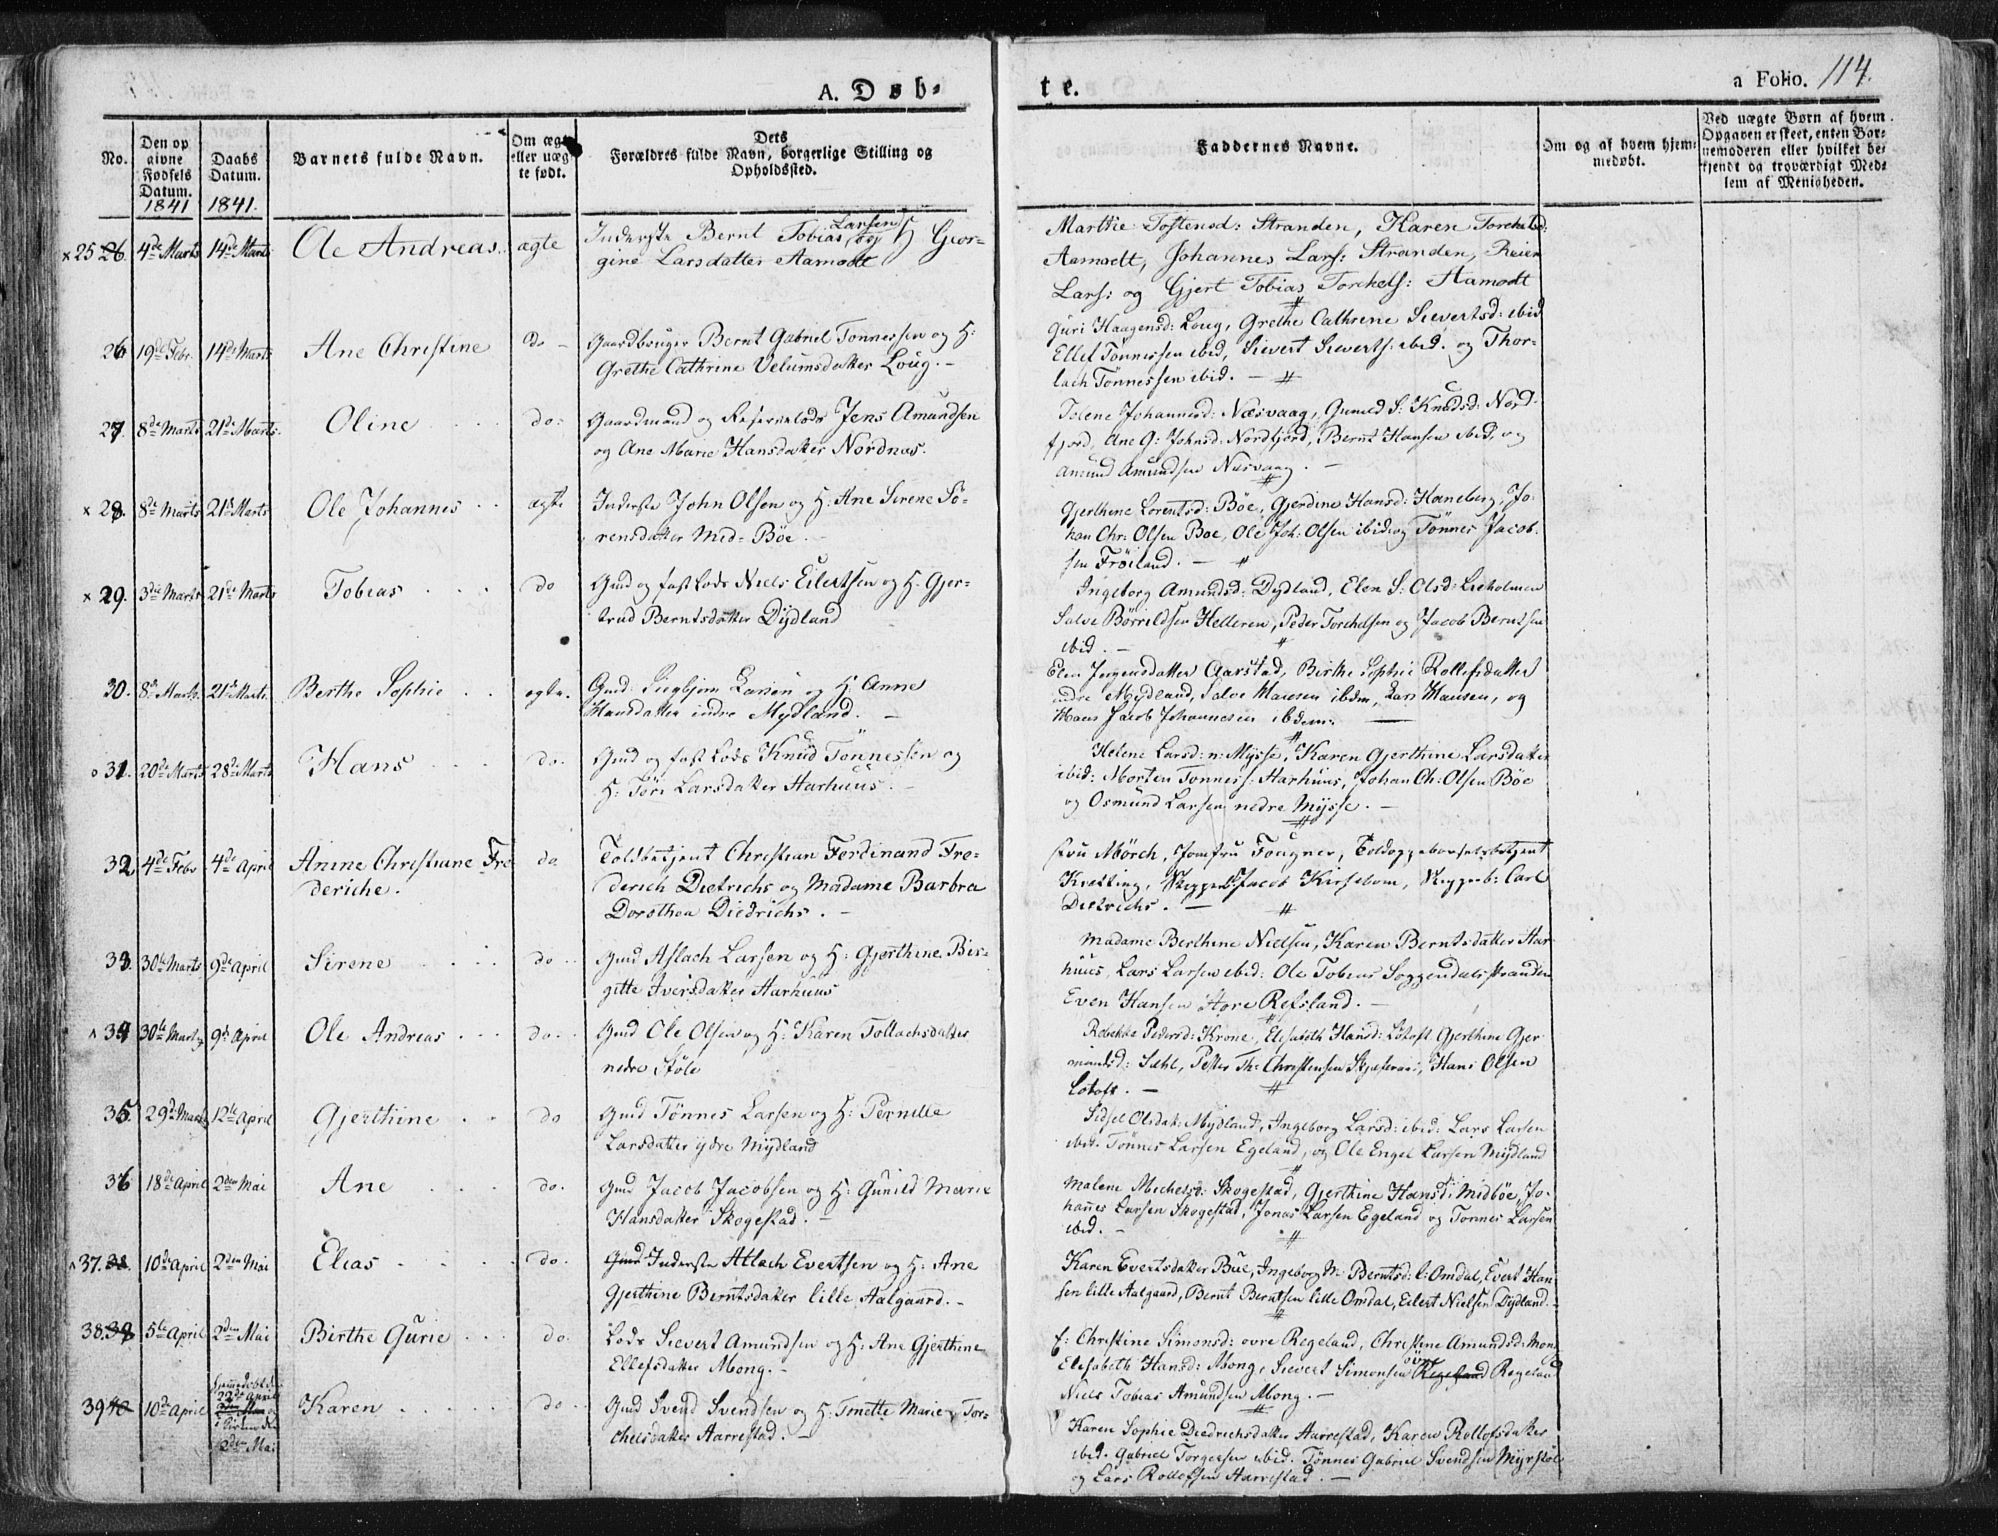 A. Døb-
te.
a Folio. 114.
No.
Den op
givne
Fødsels
Datum.
1841
Daabs
Datum.
1841.
Barnets fulde Navn.
Om ægte
eller uæg
te født.
Dets
Forældres fulde Navn, borgerlige Stilling og
Opholdssted.
Faddernes Navne.
Om og af hvem hjem-
medøbt.
Ved uægte Børn af hvem
Opgaven er skeet, enten Bar-
nemoderen eller hvilket be-
kjendt og troværdigt Med-
lem af Menigheden.
x 25 26. 4de Marts 14de Marts Ole Andreas. ægte
Inderste Bernt Tobias Larsen og H Geor-
gine Larsdatter Aamodt
Marthe Tostensd: Stranden, Karen Torchelsd:
Aamodt, Johannes Lars: Stranden, Reier
Lars: og Gjert Tobias Torchels: Aamodt
26 19de Febr. 14de Marts Ane Christine do -
Gaardbruger Bernt Gabriel Tonnessen og H:
Grethe Cathrine Velumsdatter Loug. -
Guri Haagensd: Loug, Grethe Cathrine Sievertsd: ibid
Ellef Tønnessen ibid, Sievert Sieverts: ibid. og Thor-
lach Tönnessen ibid. -
27. 8de Marts 21de Marts. Oline do:
Gaardmand og Reservelods Jens Amundsen
og Ane Marie Hansdatter Nordnæs.
Tolene Johannesd: Næsvaag, Gunild S: Knudsd: Nord-
fjord, Ane G: Johnsd: Nordfjord, Bernt Hansen ibid, og
Amund Amundsen Næsvaag. -
x 28. 8de Marts 21de Marts Ole Johannes ægte
Inderste John Olsen og H: Ane Sirene Sö-
rensdatter Mid-Böe. -
Gjerthine Lorentsd: Böe, Gjerdine Hansd: Haneberg, Jo-
han Chr: Olsen Boe, Ole Joh: Olsen ibid: og Tönnes Jacob-
sen Fröiland. -
x 29. 3die Marts 21de Marts Tobias do
Gmd og fast Lods Niels Eilertsen og H. Gjer-
trud Berntsdatter Dÿdland
Ingeborg Amundsd: Dydland, Elen S: Olsd: Lieholmen
Salve Börrildsen Helleren, Peder Torchelsen og Jacob Berntsen
ibid. -
30. 8de Marts. 21de Marts. Berthe Sophie ægte.
Gmd: Siegbjørn Larsen og H: Anne
Hansdatter indre Mydland. -
Elen Jorgensdatter Aarstad, Birthe Sophie Rollefsdatter
indre Mydland, Salve Hansen ibdm, Lars Hansen, og
Hans Jacob Johannesen ibdem: -
o 31. 20de Marts 28de Marts Hans do.
Gmd og fast Lods Knud Tönnessen og
H: Töri Larsdatter Aarhuus. -
Helene Larsd: n: Mysse, Karen Gjerthine Larsdatter
ibid: Morten Tonnes: Aarhuus, Johan Ch: Olsen Böe
og Osmund Larsen nedre Mysse. -
32 4de Febr 4de April Anine Christiane Fre
deriche. do.
Toldbetjent Christian Ferdinand Fre-
derich Dietrichs og Madame Barbra
Dorothea Diedrichs. -
Fru Mörch, Jomfru Fougner,
Krefting, Jacob Kirsebom, Carl
Dietrichs. -
33. 30te Marts 9de April Sirene do
Gmd Aslach Larsen og H: Gjerthine Bir-
gitte Iversdatter Aarhuus
Madame Berthine Nielsen, Karen Berntsdatter Aar-
huus, Lars Larsen ibid: Ole Tobias Soggendalsstranden
Even Hansen Store Refsland. -
34 30te Marts 9de April Ole Andreas do.
Gmd Ole Olsen og H: Karen Tollachsdatter
nedre Støle
Rebekke Pedersd: Krone, Elisabeth Hansd: Lotoft Gjerthine Gjer
mundsd: Sæhl, Peter Th: Christensen, Hans Olsen
Lotoft. -
35. 29de Marts 12te April Gjerthine do
Gmd Tönnes Larsen og H: Pernille
Larsdatter ydre Mydland
Sidsel Olsdat: Mydland, Ingeborg Larsd: ibid: Lars Larsen
ibid. Tönnes Larsen Egeland, og Ole Engel Larsen Mydland
36 18de April 2den Mai Ane do.
Gmd Jacob Jacobsen og H: Gunild Marie
Hansdatter Skogestad. -
Malene Michelsd: Skogestad, Gjerthine Hansd: Midböe, Jo-
hannes Larsen Skogestad, Jonas Larsen Egeland og Tonnes Larsen
ibid. -
37. 38. 10de April 2den Mai Elias do.
Gmd Inderste Atlach Evertsen og H: Ane
Gjerthine Berntsdatter lille Aalgaard. -
Karen Evertsdatter Bue, Ingeborg M: Berntsd: l: Omdal, Evert Han-
sen lille Aalgaard, Bernt Berntsen lille Omdal, Eilert Nielsen Dydland. -
38. 39 5te April 2den Mai Birthe Gurie do.
Lods Sievert Amundsen og H: Ane Gjerthine
Ellefsdatter Mong. -
E: Christine Simonsd: ovre Regeland, Christine Amundsd: Mong
Elisabeth Hansd: Mong, Sievert Simonsen övre Regeland Regeland
Niels Tobias Amundsen Mong. -
39 40 10de April Hjemmedöbt
22de April
2den Mai
2den Mai Karen do
Gmd Svend Svendsen og H: Tonette Marie Tor-
chelsdatter Aarrestad. -
Karen Sophie Diedrichsdatter Aarrestad, Karen Rollofsdatter
ibid. Gabriel Torgersen ibid. Tönnes Gabriel Svendsen Myrstöl
og Lars Rollefsen Aarrestad. -